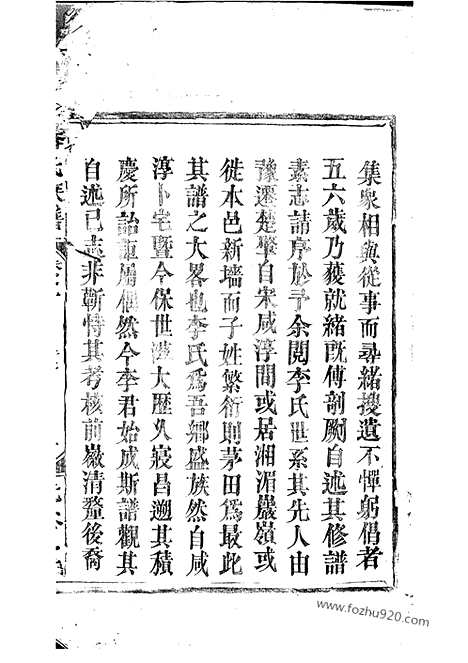 集衆相與從事而尋緒搜遺不憚躬倡者
五六歲乃蕆就緒既傅剞劂自述其修譜
素志請序於予余閱李氏世系其先人由
豫遷楚肇自宋咸淳間或居湘湄巖嶺或
徙本邑新墻而子姓繁衍則茅田爲最此
其譜之大畧也李氏爲吾鄉盛族然自咸
淳卜宅暨今保世滋大歷久寢昌遡其積
慶所詒詎屬偶然今李君始成斯譜觀其
自述已志非斬特其考核前嚴清釐後裔
氏族譜
www.fozhu920.com